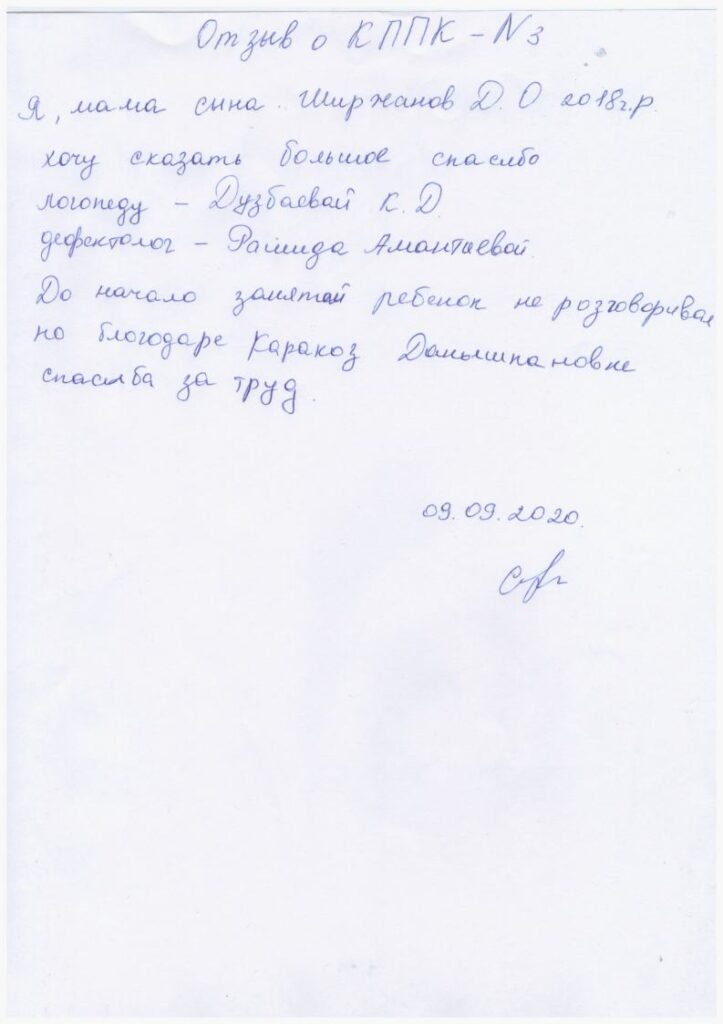 Отзыв о КППК - N3
Я, мама сына Ширжанов Д. О 2018г.р.
хочу сказать большое спасибо
логопеду - Дузбаевай К. Д.
дефектолог - Рашида Амантаевой.
До начало занятай ребенок не розговоривал
но благодаре Каракоз Данышпановне
спасиба за труд.
09.09.2020.